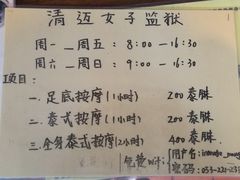 清迈女子监狱
周一__周五：8:00—16:30
周六__周日：9:00—16:30
项目：
一.足底按摩(1小时) 200泰銖
二.泰式按摩(1小时) 200泰銖
三.全身泰式按摩(2小时) 400泰銖
用户名：
密码：053-221-231